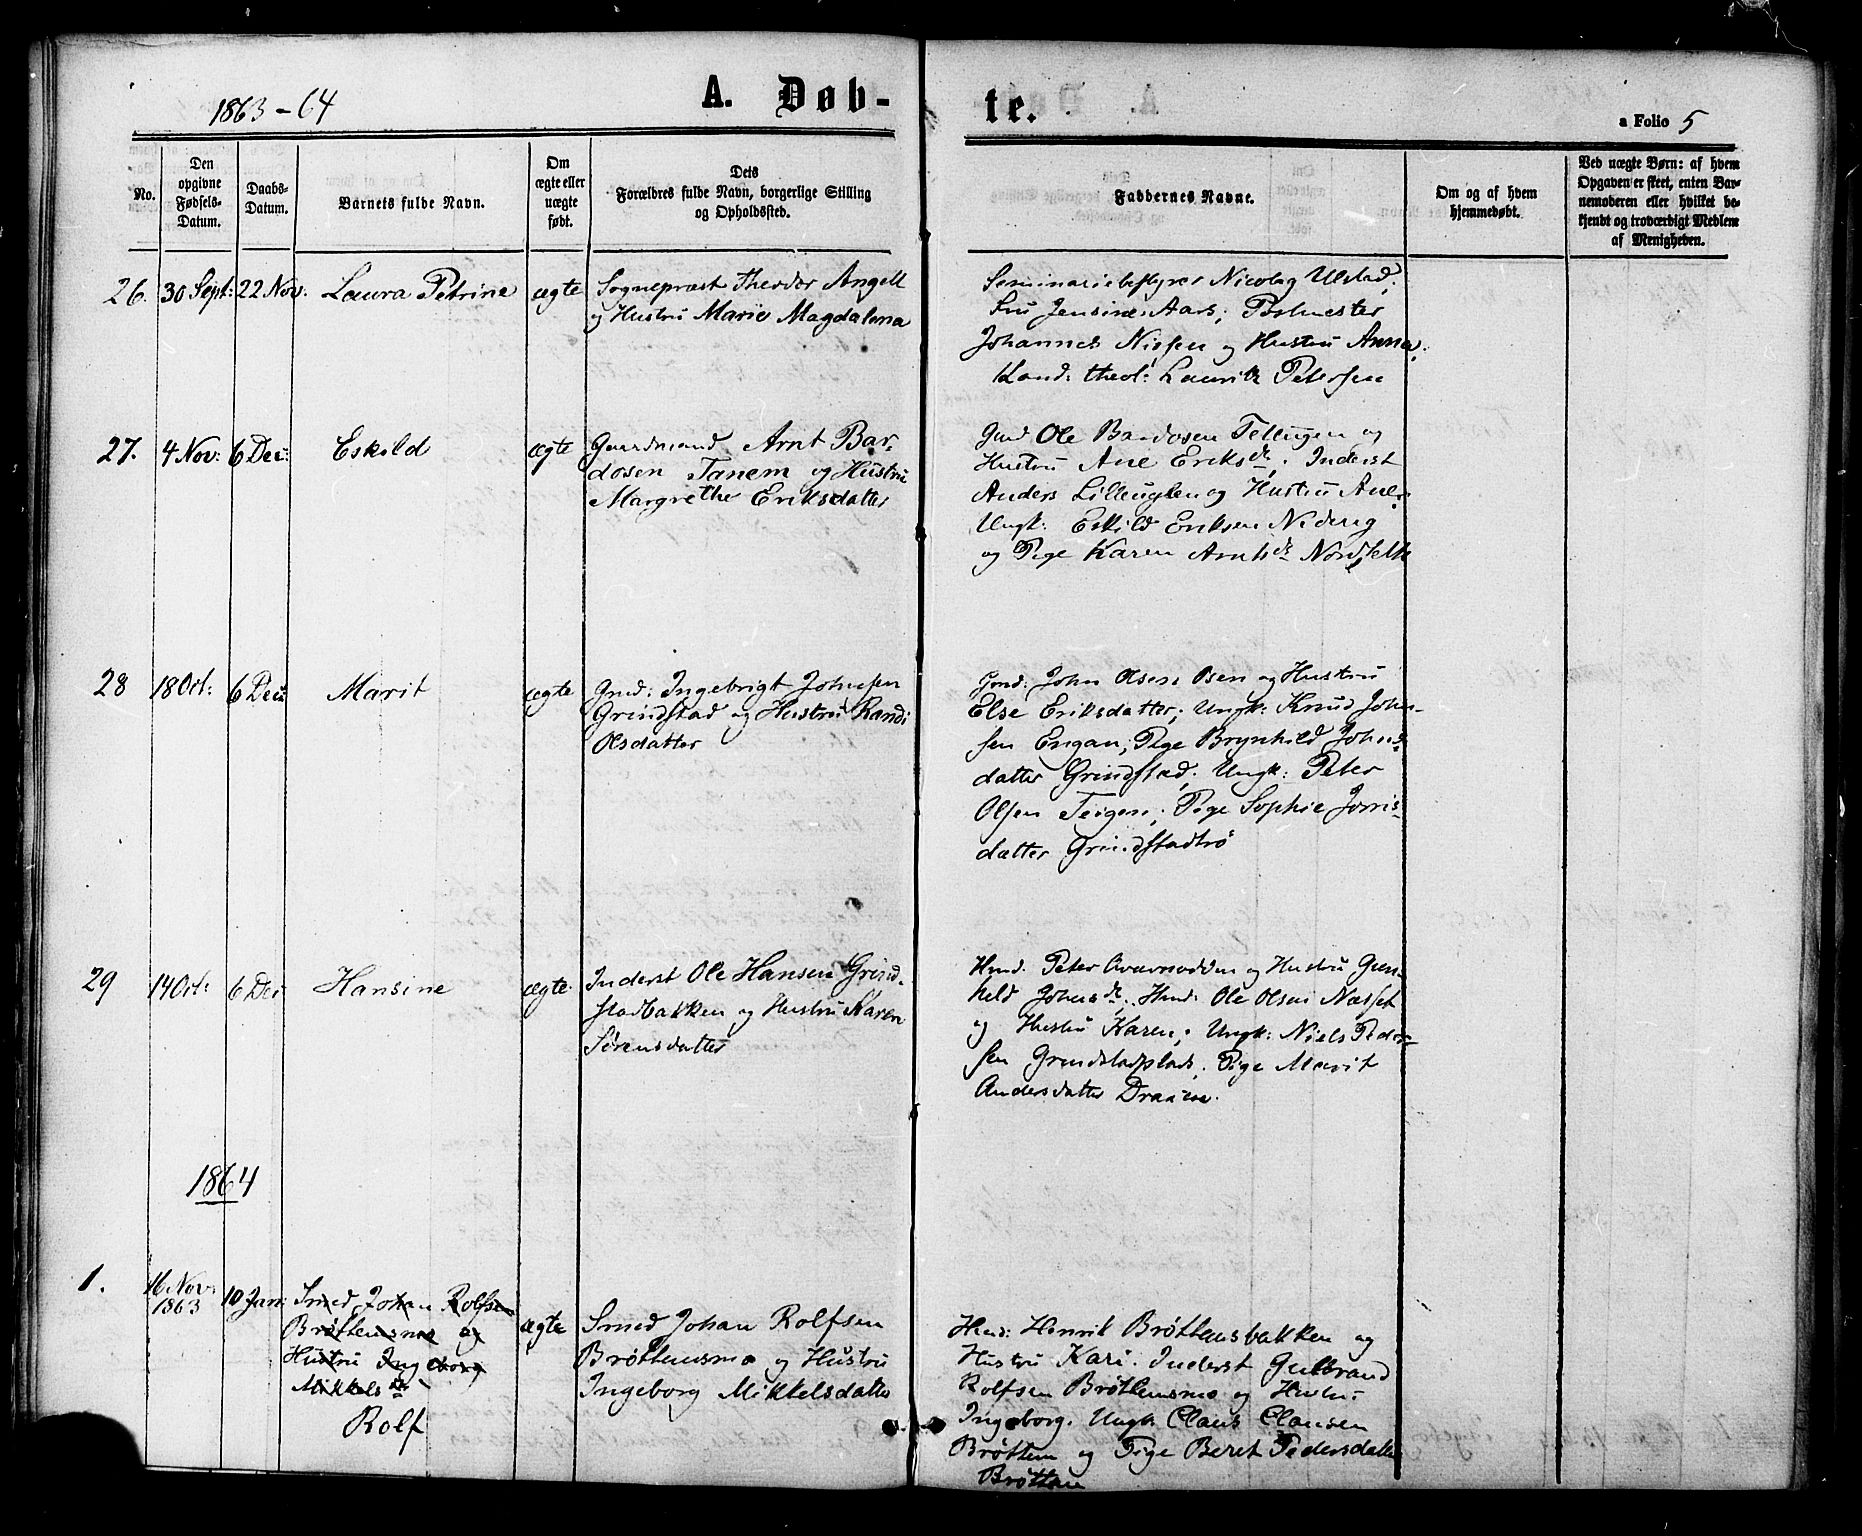 1863-64
A. Døb-
te.
a Folio 5
No.
Den
opgivne
Fødsels-
Datum.
Daabs-
Datum.
Barnets fulde Navn.
Om
ægte eller
uægte
født.
Dets
Forældres fulde Navn, borgerlige Stilling
og Opholdssted.
Faddernes Navne.
Om og af hvem
hjemmedøbt.
Ved uægte Børn: af hvem
Opgaven er skeet, enten Bar-
nemoderen eller hvilket be-
kjendt og troværdigt Medlem
af Menigheden.
26. 30 Sept: 22 Nov: Laura Petrine ægte
Sognepræst Theodor Angell
og Hustru Marie Magdalena
Seminariebestyrer Nicolay Ulstad,
Fru Jensine Aars,
Johannes Nissen og Hustru Anna,
Kand: theol: Laurits Petersen
27. 4 Nov: 6 Dec: Eskild ægte
Gaardmand Arnt Bar-
dosen Tanem og Hustru
Margrethe Eriksdatter
Gmd Ole Bardosen Tellugen og
Hustru Ane Eriksdr, Inderst
Anders Lilleuglen og Hustru Ane,
Ungk: Eskild Eriksen
og Pige Karen Arntsdr
28 18 Oct: 6 Dec: Marit ægte
Gmd: Ingebrigt Johnsen
Grindstad og Hustru Randi
Olsdatter
Gmd: John Olsen Osen og Hustru
Else Eriksdatter; Ungk: Knud John-
sen Engan; Pige Brynhild Johns-
datter Grindstad; Ungk: Peter
Olsen Teigen; Pige Sophie Jonis-
datter Grindstadtrø
29 14 Oct: 6 Dec Hansine ægte
Inderst Ole Hansen Grind-
stadbakken og Hustru Karen
Sørensdatter
Hmd. Peter og Hustru Gun-
hild Johnsdr. Hmd: Ole Olsen Næsset
og Hustru Karen; Ungk: Niels Peder-
sen Grindstadplads; Pige Marit
Andersdatter
1864
1. 16 Nov: 1863 10 Jan:
Smed Johan Rolfsen
Brøttemsmo og
Hustru Ingeborg
Mikkelsdr
Rolf
ægte
Smed Johan Rolfsen
Brøttemsmo og Hustru
Ingeborg Mikkelsdatter
Hmd: Henrik Brøttemsbakken og
Hustru Kari. Inderst Gulbrand
Rolfsen Brøttemsmo og Hustru
Ingeborg. Ungk: Claus Clausen
Brøttem og Pige Beret Pedersdatter
Brøttem